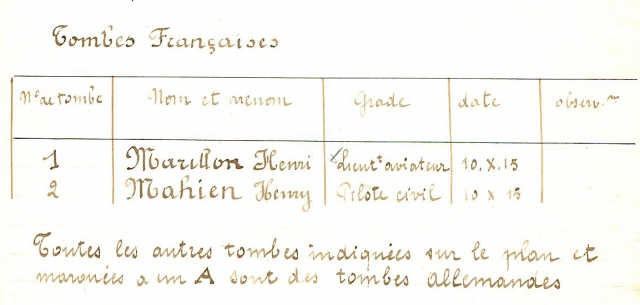 Tombes Françaises
N° de tombe Nom et prénom Grade date observ.ons
1 Marillon Henri Lieut.t aviateur 10.X.15
2 Mahien Henry Pilote civil 10 X 15
Toutes les autres tombes indiquées sur le plan et
marquées a un A sont des tombes allemandes